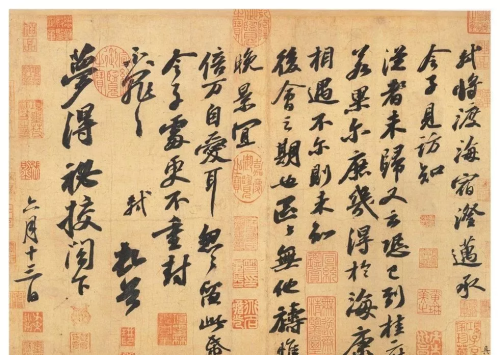 軾將渡海宿澄邁承
令子見訪知
從者未歸又云恐已到桂府
若果尔庶幾得於海康
相遇不尔則未知
後會之期也區區無他禱惟
晚景宜
倍万自愛耳匆匆留此帋
令子處更不重封
不罪不罪
軾頓首
夢得祕校閣下
六月十三日